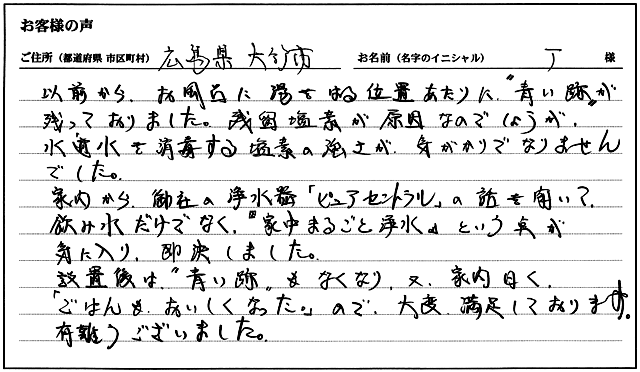 お客様の声
ご住所（都道府県 市区町村） 広島県 大竹市 お名前（名字のイニシャル） T 様
以前から、お風呂に湯をはる位置あたりに、"青い跡"が
残っておりました。残留塩素が原因なのでしょうが、
水道水を消毒する塩素の強さが、気がかりでなりません
でした。
家内から、御社の浄水器「ピュアセントラル」の話を聞いて、
飲み水だけでなく、『家中まるごと浄水』という点が
気に入り、即決しました。
設置後は、"青い跡"もなくなり、又、家内曰く、
「ごはんも、おいしくなった。」ので、大変、満足しております。
有難うございました。